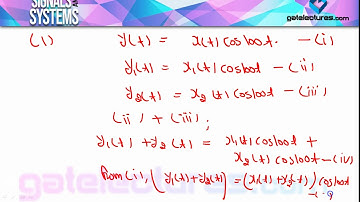 SIGNALS &
SYSTEMS
gatelectures.com
(1) y(t) = x(t) cos100t. —(i)
y1(t) = x1(t) cos100t —(ii)
y2(t) = x2(t) cos100t —(iii)
(ii) + (iii) ;
y1(t) + y2(t) = x1(t) cos100t +
x2(t) cos100t —(iv)
from (i), (y1(t)+y2(t)) = (x1(t)+x2(t)) cos100t
gatelectures.com